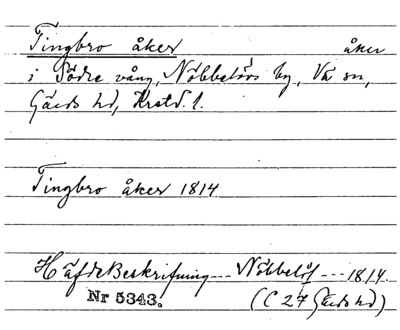 Tingbro åker åker
i Södre vång, Nöbbelövs by, Vä sn,
Gärds hd, Krstd. l.
Tingbro åker 1814
HäfdeBeskrifning--- Nöbbelöf --- 1814.
Nr 5343. (C 27 Gärds hd)